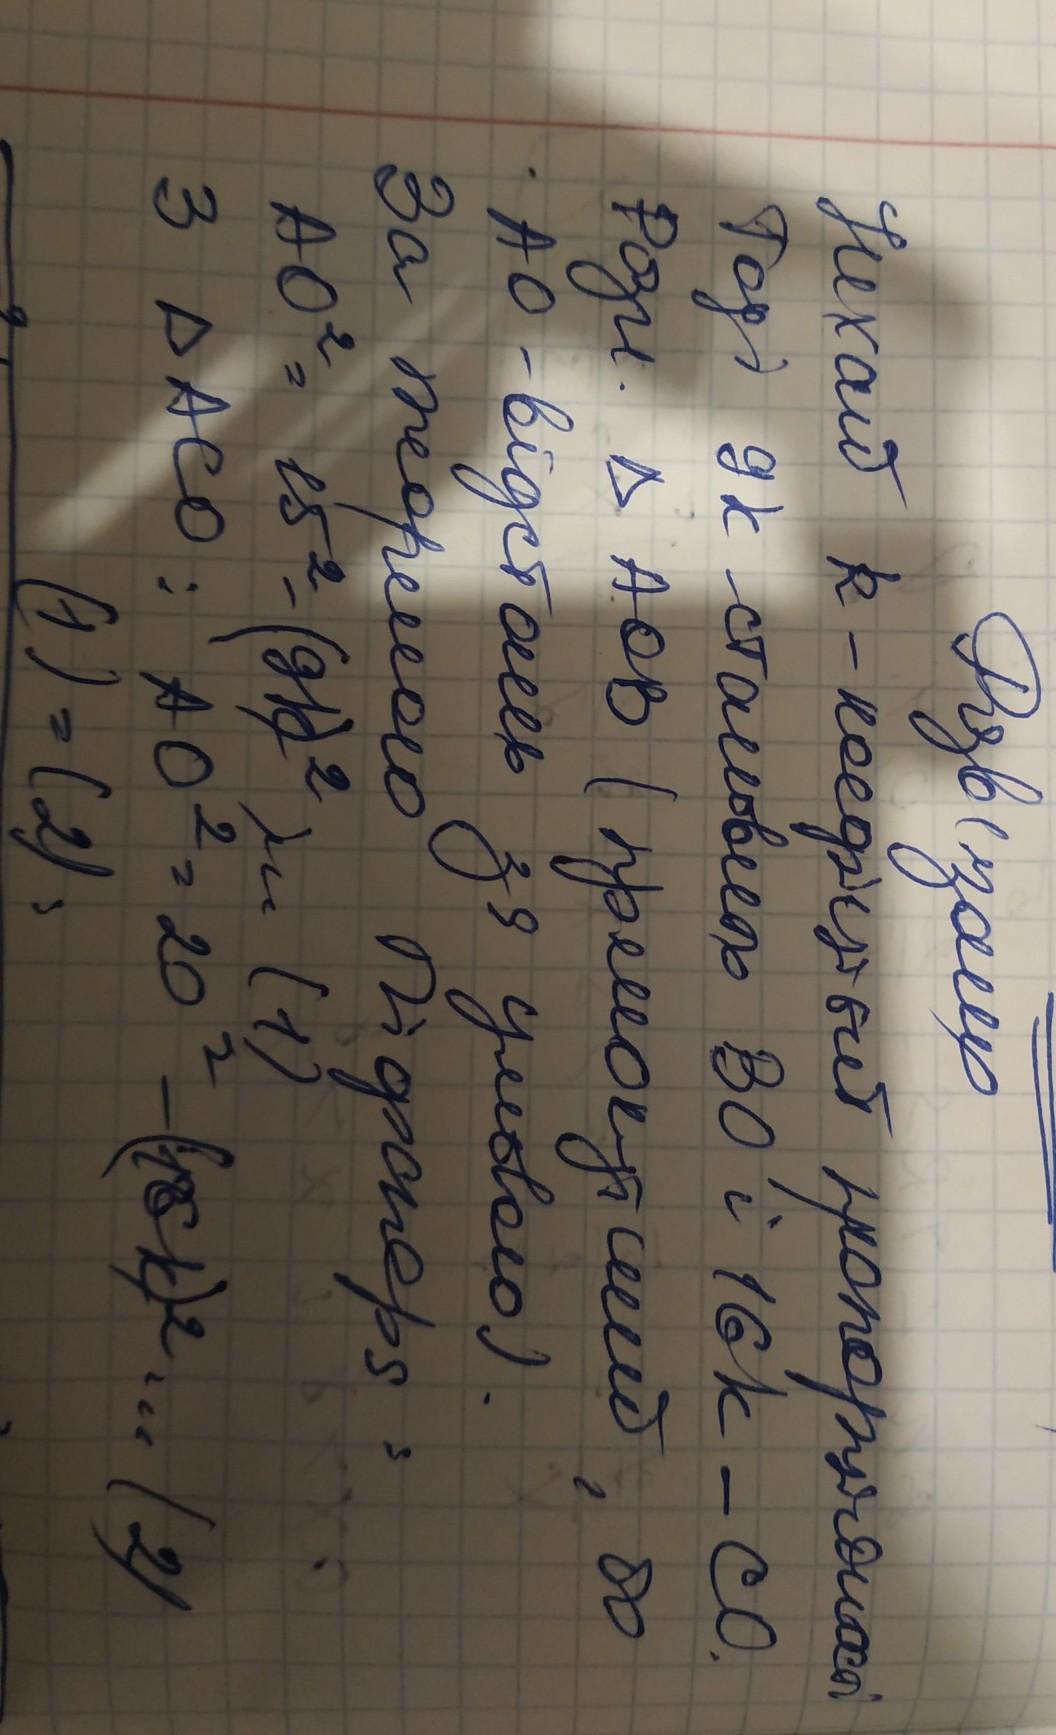 Розв'язання
Нехай k - коефіцієнт пропорційності
Тоді 9k - становить BO і 16k - CO.
Розгл. Δ AOB ( прямокутний, бо
AO - відстань, за умовою).
За теоремою Піфагора:
AO² = 15² - (9k)² ... (1)
З Δ ACO: AO² = 20² - (16k)² ... (2)
(1) = (2):